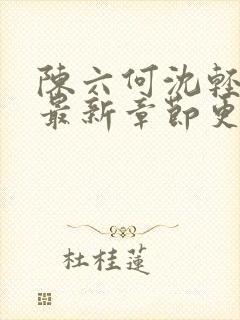 陳六何沈輕
最新章節更
杜桂蓮